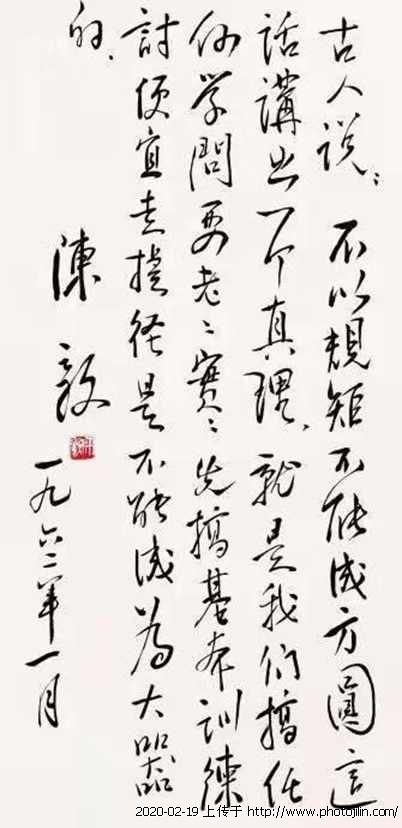 古人说：不以規矩不能成方圓這
话講出一个真理、就是我们搞任
何学問要老〻實〻先搞基本訓練
討便宜走捷径是不能成为大器
的、
陳毅
一九六二年一月
2020-02-19 上传于 http://www.photojilin.com/